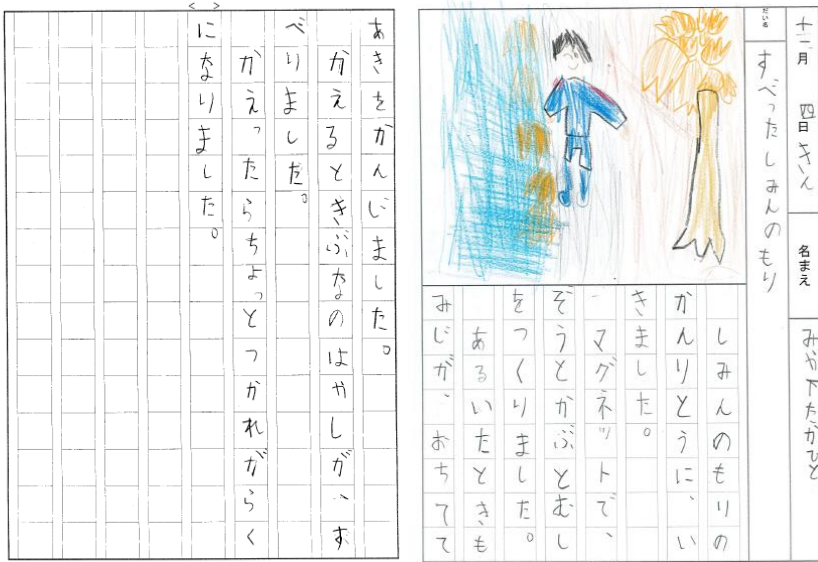 十二月 四日 きん 名まえ みや下たかひと
だい名 すべったしみんのもり
しみんのもりの
かんりとうに、い
きました。
マグネットで、
ぞうとかぶとむし
をつくりました。
あるいたときも
みじが、おちてて
あきをかんじました。
かえるときぶなのはやしが、す
べりました。
かえったらちょっとつかれがらく
になりました。